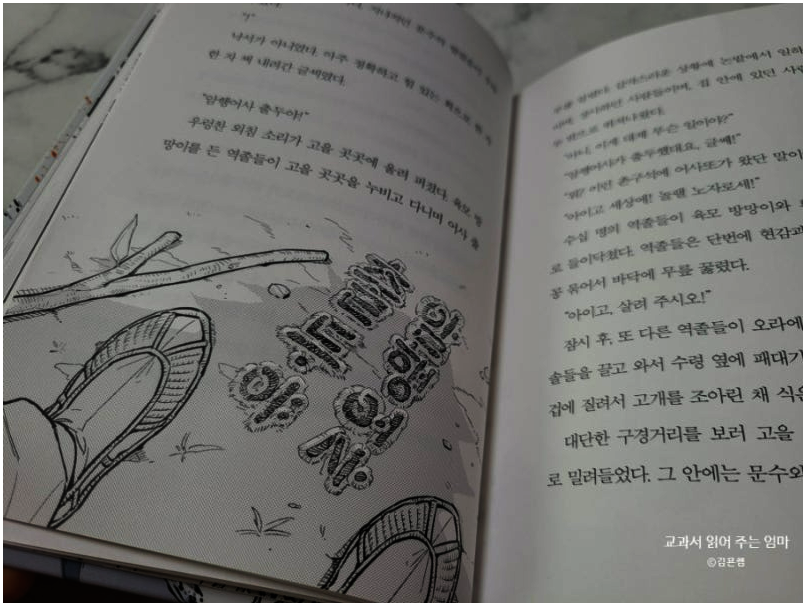 "?"
낙서가 아니었다. 아주 정확하고 힘 있는 획으로 한 자
한 자 써 내려간 글씨였다.
"암행어사 출두야!"
우렁찬 외침 소리가 고을 곳곳에 울려 퍼졌다. 육모 방
망이를 든 역졸들이 고을 곳곳을 누비고 다니며 어사 출
암행어사
출도
야
상황에 논밭에서 일하
사람들이며, 집 안에 있던 사람
"아니, 이게 대체 무슨 일이야?"
"암행어사가 출두했대요, 글쎄!"
"뭐? 이런 촌구석에 어사또가 왔단 말이
"아이고 세상에! 놀랠 노자로세!"
수십 명의 역졸들이 육모 방망이와
로 들이닥쳤다. 역졸들은 단번에 현감과
꽁 묶어서 바닥에 무릎 꿇렸다.
"아이고, 살려 주시오!"
잠시 후, 또 다른 역졸들이 오라에
솔들을 끌고 와서 수령 옆에 패대기
겁에 질려서 고개를 조아린 채 식은
대단한 구경거리를 보러 고을
로 밀려들었다. 그 안에는 문수와
교과서 읽어 주는 엄마